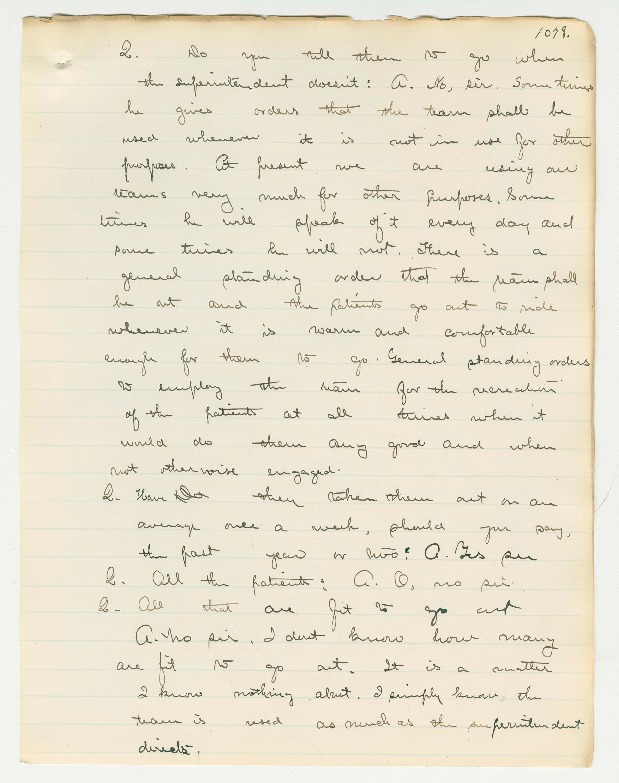 1079.
Q. Do you tell them to go when
the superintendent doesn't: A. No, sir. Sometimes
he gives orders that the team shall be
used whenever it is not in use for other
purposes. At present we are using our
teams very much for other purposes. Some
times he will speak of it every day and
some times he will not. There is a
general standing order that the team shall
be out and the patients go out to ride
whenever it is warm and comfortable
enough for them to go. General standing orders
to employ the team for the recreation
of the patients at all times when it
would do them any good and when
not otherwise engaged.
Q. Have they taken them out on an
average once a week, should you say,
the past year or two? A. Yes sir
Q. All the patients: A. O, no sir.
Q. All that are fit to go out
A. No sir. I dont know how many
are fit to go out. It is a matter
I know nothing about. I simply know the
team is used as much as the superintendent
directs.